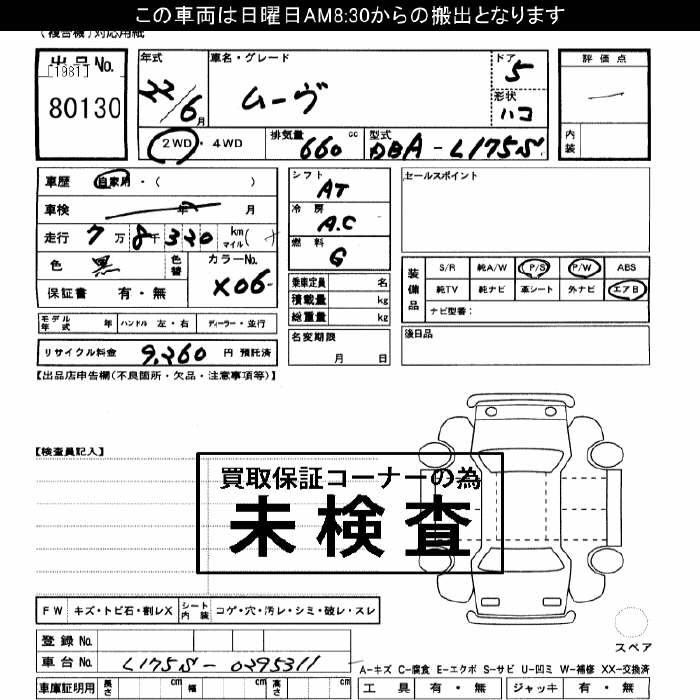 この車両は日曜日AM8:30からの搬出となります
(複合機)対応用紙
出品No.
[1981]
80130
年式
22/6月
車名・グレード
ムーヴ
ドア
5
形状
ハコ
評価点
内装
2WD・4WD
排気量 660 cc
型式 DBA-L175S
車歴 自家用・( )
車検 年 月
走行 7万8千320 km マイル (
色 黒 色替
カラーNo. X06
保証書 有・無
シフト
AT
冷房
A.C
燃料
G
乗車定員 名
積載量 kg
総重量 kg
セールスポイント
装備品
S/R 純A/W P/S P/W ABS
純TV 純ナビ 革シート 外ナビ エアB
ナビ型番:
モデル年式 年 ハンドル 左・右 ディーラー・並行
名変期限
月 日
後日品
リサイクル料金 9,260 円 預託済
【出品店申告欄(不良箇所・欠品・注意事項等)】
【検査員記入】
買取保証コーナーの為
未検査
FW キズ・トビ石・割レX シート内装 コゲ・穴・汚レ・シミ・破レ・スレ
スペア
登録No.
車台No. L175S-0295311
A-キズ C-腐食 E-エクボ S-サビ U-凹ミ W-補修 XX-交換済
車庫証明用 長さ cm 幅 cm 高さ cm
工具 有・無 ジャッキ 有・無